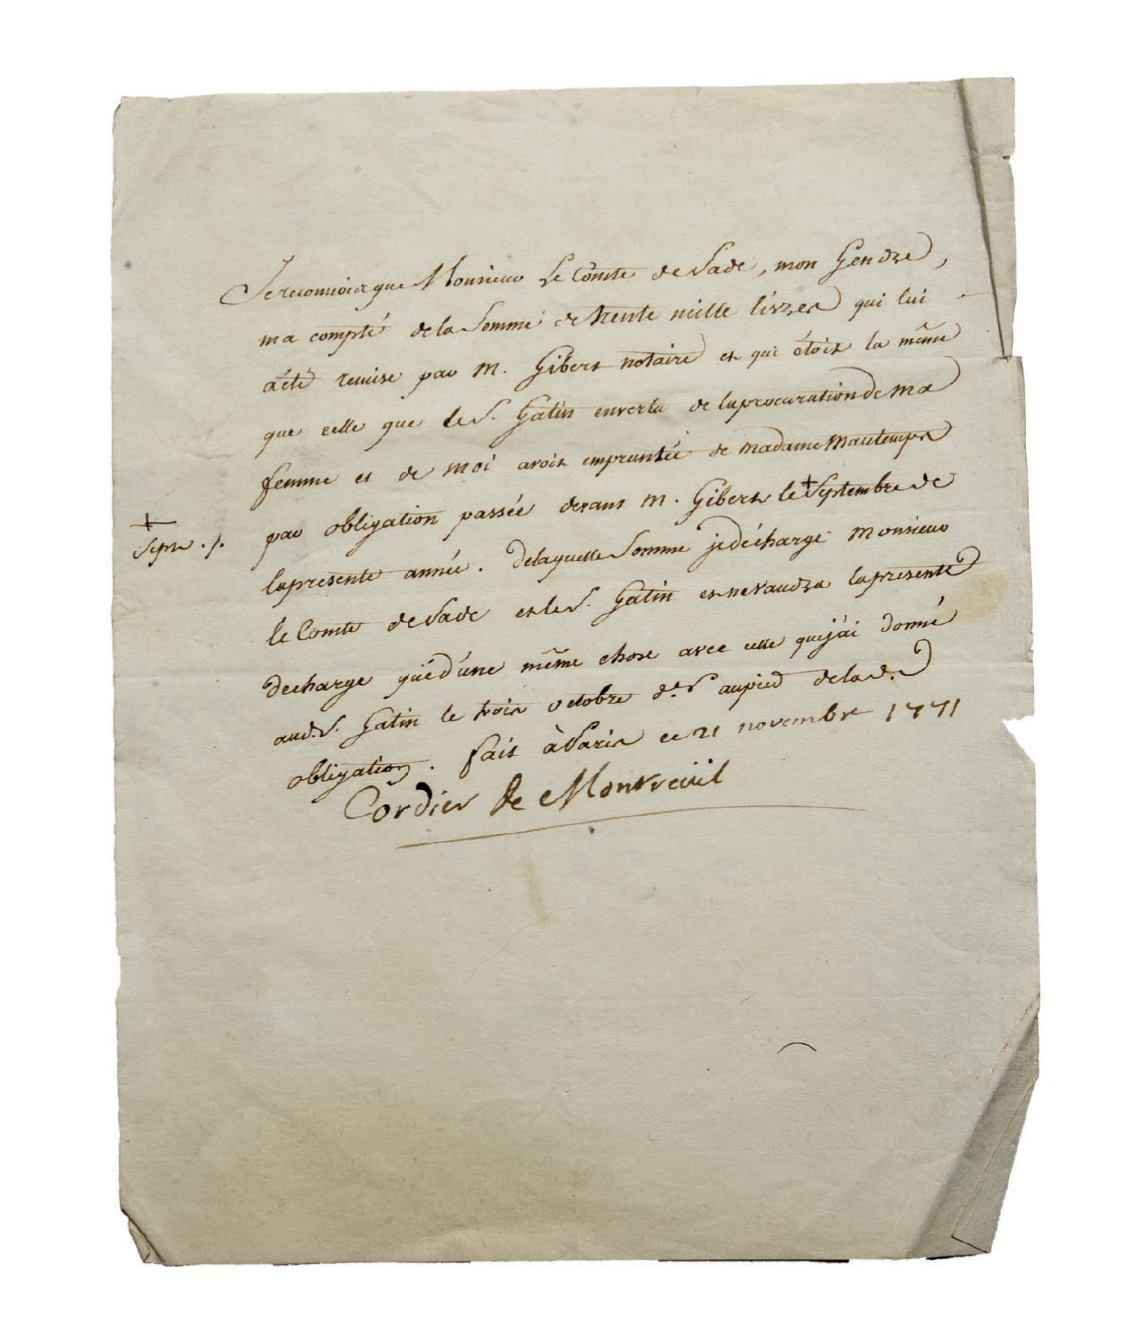 Je reconnois que Monsieur Le Comte de Sade, mon Gendre,
ma compté de la Somme de trente mille livres qui lui
a été remise par M. Gibert notaire et qui étoit la même
que celle que le S. Gatin envertu de laprocuration de ma
femme et de moi avoit empruntée de Madame Mautemps
par obligation passée devant M. Gibert le + Septembre de
+
Sept .
lapresente année. delaquelle Somme jedécharge Monsieur
le Comte de Sade et le S. Gatin et ne vaudra lapresente
decharge qu'e d'une même chose avec celle quej'ai donné
aud. S. Gatin le trois octobre d.er aupied dela d.
obligation. fait à Paris ce 21 novembre 1771
Cordier de Montreüil